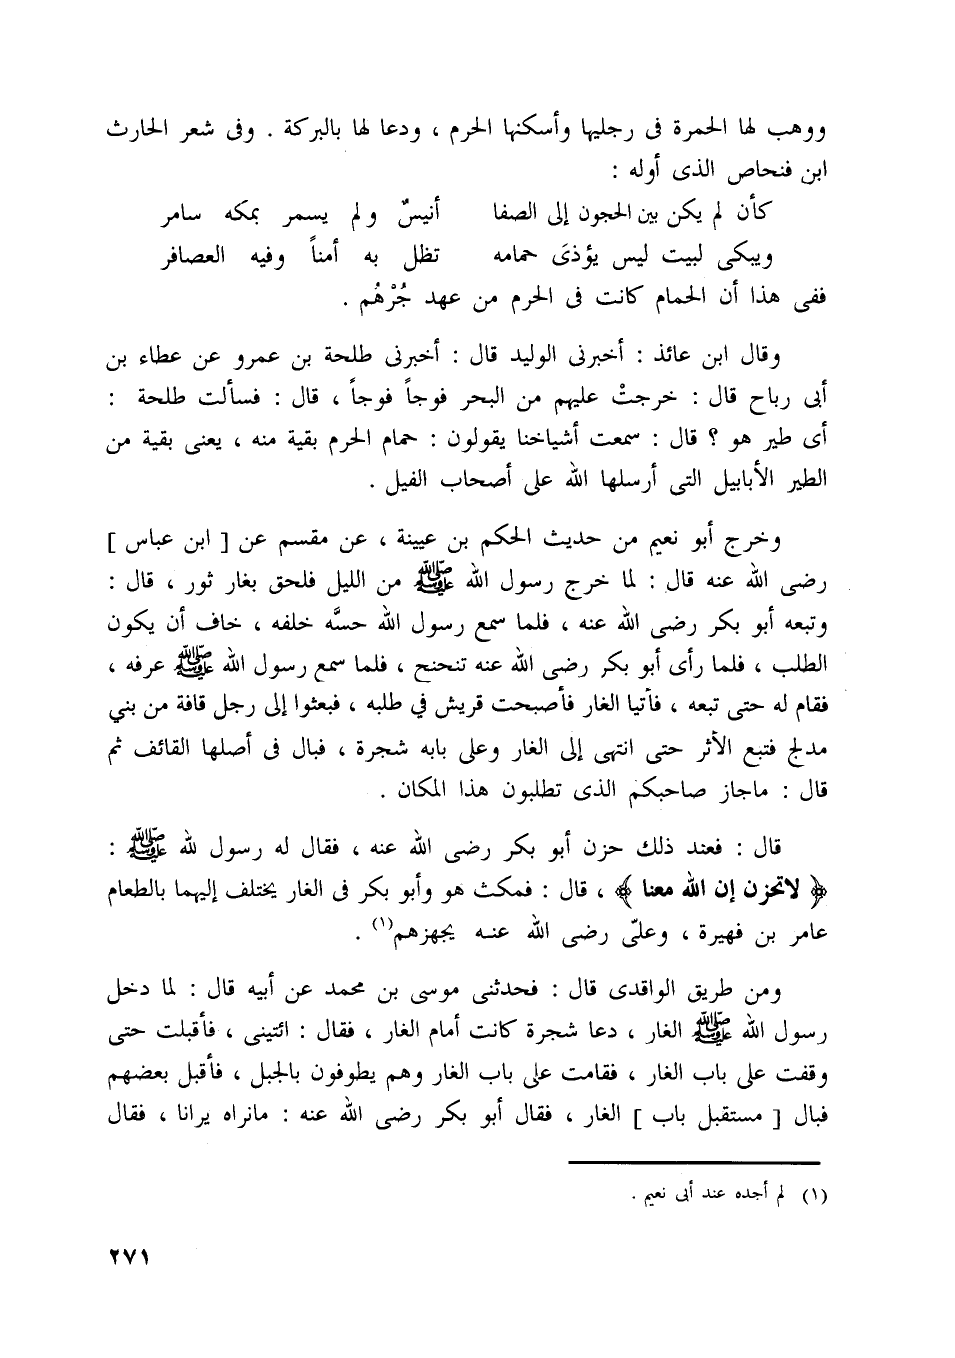 ووهب لها الحمرة فى رجليها وأسكنها الحرم ، ودعا لها بالبركة . وفى شعر الحارث
ابن فنحاص الذى أوله :
كأن لم يكن بين الحجون إلى الصفا أنيسٌ ولم يسمر بمكه سامر
ويبكى لبيت ليس يؤذىَ حمامه تظل به أمناً وفيه العصافر
ففى هذا أن الحمام كانت فى الحرم من عهد جُرْهُم .
وقال ابن عائذ : أخبرنى الوليد قال : أخبرنى طلحة بن عمرو عن عطاء بن
أبى رباح قال : خرجتْ عليهم من البحر فوجاً فوجاً ، قال : فسألت طلحة :
أى طير هو ؟ قال : سمعت أشياخنا يقولون : حمام الحرم بقية منه ، يعنى بقية من
الطير الأبابيل التى أرسلها الله على أصحاب الفيل .
وخرج أبو نعيم من حديث الحكم بن عيينة ، عن مقسم عن [ ابن عباس ]
رضى الله عنه قال : لما خرج رسول الله ﷺ من الليل فلحق بغار ثور ، قال :
وتبعه أبو بكر رضى الله عنه ، فلما سمع رسول الله حسَّه خلفه ، خاف أن يكون
الطلب ، فلما رأى أبو بكر رضى الله عنه تنحنح ، فلما سمع رسول الله ﷺ عرفه ،
فقام له حتى تبعه ، فأتيا الغار فأصبحت قريش في طلبه ، فبعثوا إلى رجل قافة من بني
مدلج فتبع الأثر حتى انتهى إلى الغار وعلى بابه شجرة ، فبال فى أصلها القائف ثم
قال : ماجاز صاحبكم الذى تطلبون هذا المكان .
قال : فعند ذلك حزن أبو بكر رضى الله عنه ، فقال له رسول لله ﷺ :
﴿ لاتحزن إن الله معنا ﴾ ، قال : فمكث هو وأبو بكر فى الغار يختلف إليهما بالطعام
عامر بن فهيرة ، وعلىّ رضى الله عنه يجهزهم(١) .
ومن طريق الواقدى قال : فحدثنى موسى بن محمد عن أبيه قال : لما دخل
رسول الله ﷺ الغار ، دعا شجرة كانت أمام الغار ، فقال : ائتينى ، فأقبلت حتى
وقفت على باب الغار ، فقامت على باب الغار وهم يطوفون بالجبل ، فأقبل بعضهم
فبال [ مستقبل باب ] الغار ، فقال أبو بكر رضى الله عنه : مانراه يرانا ، فقال
(١) لم أجده عند أبى نعيم .
٢٧١